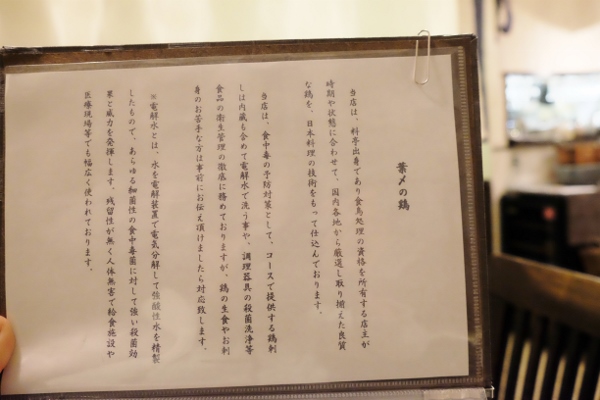 葉〆の鶏
当店は、料亭出身であり食鳥処理の資格を所有する店主が
時期や状態に合わせて、国内各地から厳選し取り揃えた良質
な鶏を、日本料理の技術をもって仕込んでおります。
当店は、食中毒の予防対策として、コースで提供する鶏刺
しは内蔵も含めて電解水で洗う事や、調理器具の殺菌洗浄等
食品の衛生管理の徹底に務めておりますが、鶏の生食やお刺
身のお苦手な方は事前にお伝え頂けましたら対応致します。
※電解水とは、水を電解装置で電気分解して強酸性水を精製
したもので、あらゆる細菌性の食中毒菌に対して強い殺菌効
果と威力を発揮します。残留性が無く人体無害で給食施設や
医療現場等でも幅広く使われております。